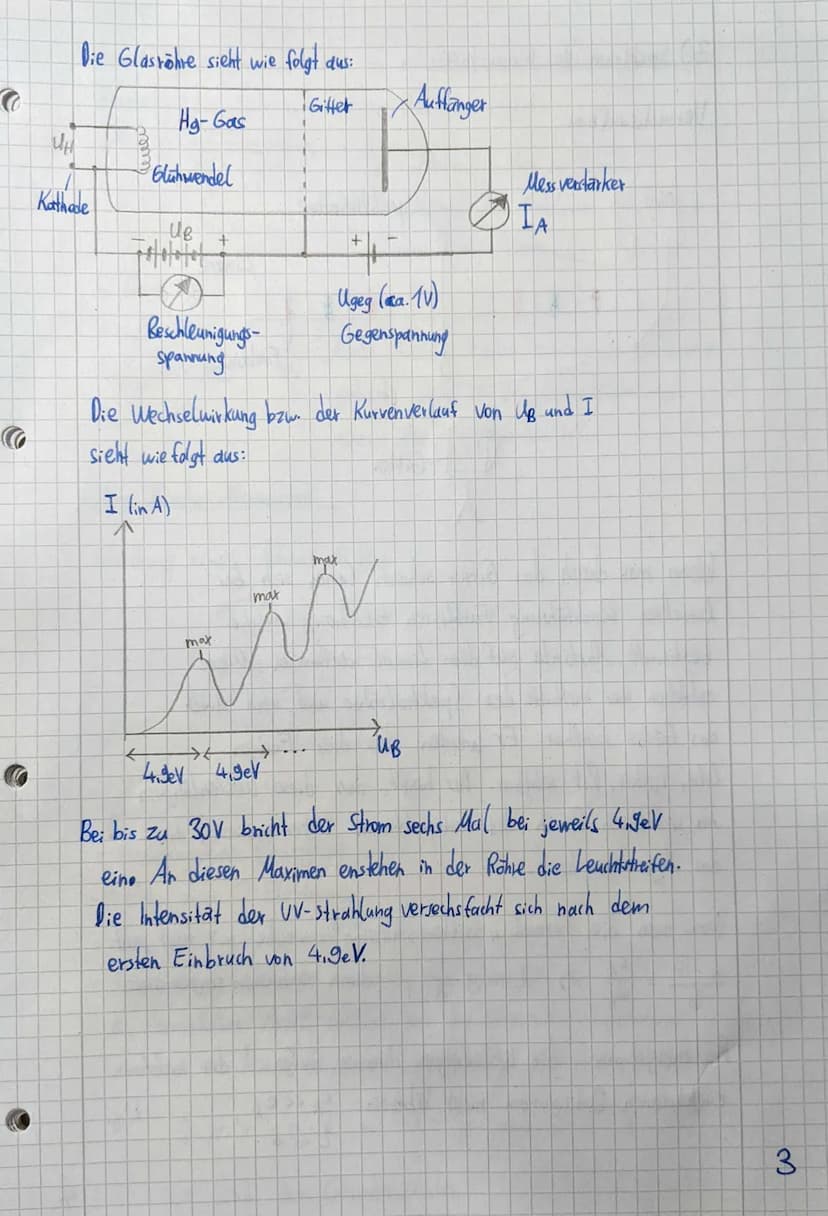 Die Glasröhre sieht wie folgt aus:
Gitter
Auffänger
Hg-Gas
U_H
Glühwendel
Kathode
Messverstärker
I_A
U_B
- +
+ -
Ugeg (ca. 1V)
Gegenspannung
Beschleunigungs-
spannung
Die Wechselwirkung bzw. der Kurvenverlauf von U_B und I
sieht wie folgt aus:
I (in A)
max
max
max
U_B
4,9eV 4,9eV ...
Bei bis zu 30V bricht der Strom sechs Mal bei jeweils 4,9eV
ein. An diesen Maximen enstehen in der Röhre die Leuchtstreifen.
Die Intensität der UV-Strahlung versechsfacht sich nach dem
ersten Einbruch von 4,9eV.
3